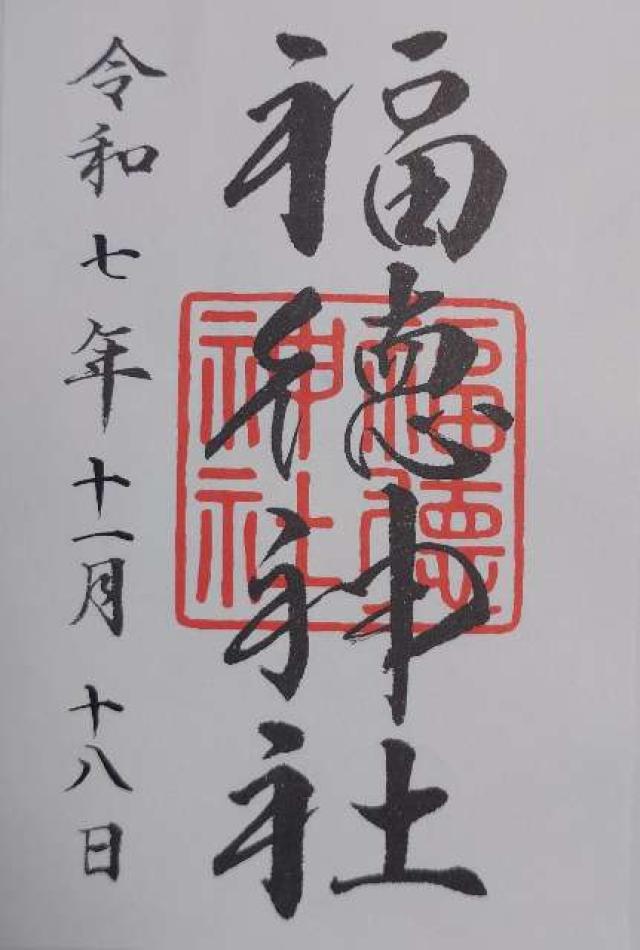 福徳神社
福徳神社
令和七年十一月十八日